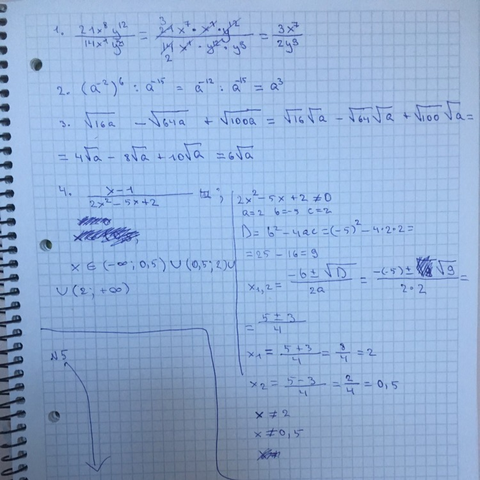 1. 21x⁸y¹²/14x¹y¹⁵ = 21x⁷·x¹·y¹²/14x¹·y¹²·y³ = 3x⁷/2y³
2. (a⁻²)⁶ : a⁻¹⁵ = a⁻¹² : a⁻¹⁵ = a³
3. √16a - √64a + √100a = √16√a - √64√a + √100√a =
= 4√a - 8√a + 10√a = 6√a
4. x-1/2x²-5x+2 ;
x ∈ (-∞; 0,5) ∪ (0,5; 2) ∪
∪ (2; +∞)
2x²-5x+2≠0
a=2 b=-5 c=2
D=b²-4ac=(-5)²-4·2·2=
=25-16=9
x₁,₂ = -b±√D/2a = -(-5)±√9/2·2 =
= 5±3/4
x₁ = 5+3/4 = 8/4 = 2
x₂ = 5-3/4 = 2/4 = 0,5
x ≠ 2
x ≠ 0,5
№5